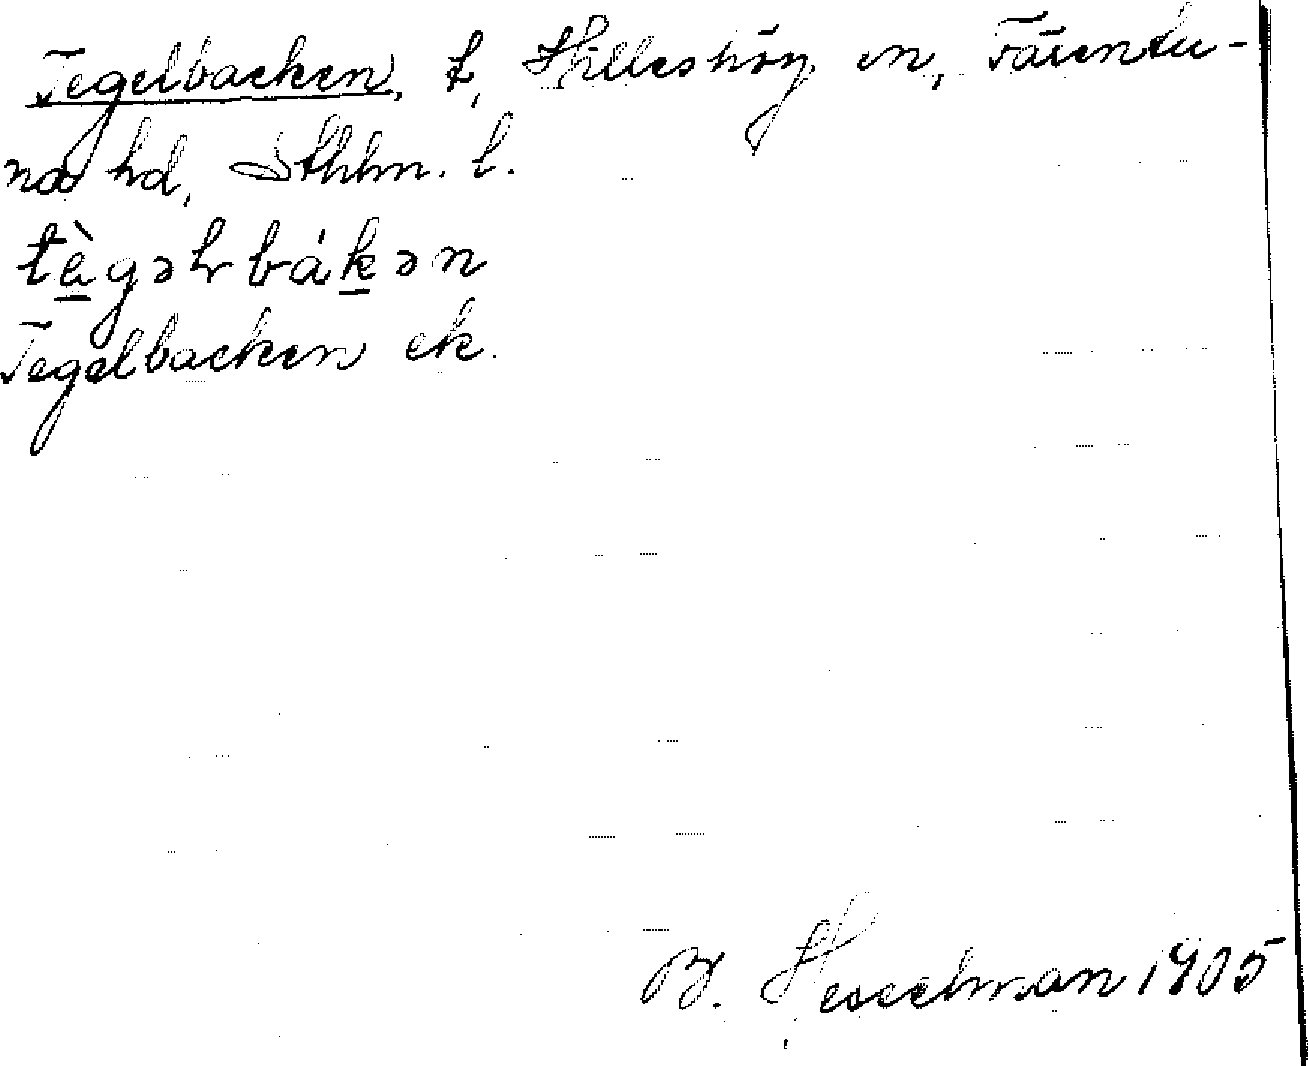 Tegelbacken, t, Hilleshög sn, Färentu-
na hd, Sthlm. l.
tègəlbákən
Tegelbacken ek.
B. Hesselman 1905